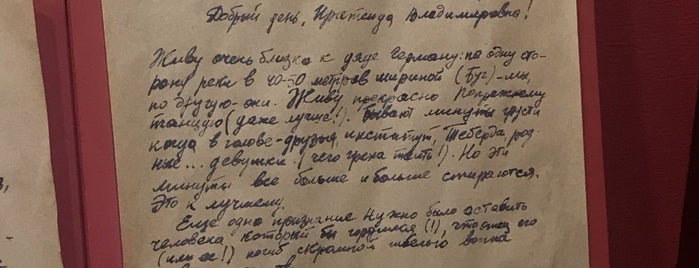 Добрый день, Владимировна!
Живу очень близко к дяде Герману: по одну сто-
рону реки в 40-50 метров шириной (Буг) - мы,
по другую - они. Живу прекрасно По-прежнему
танцую (даже лучше!). Бывают минуты грусти
когда в голове - друзья, институт, Теберда, род-
ные... девушки (чего греха таить!). Но эти
минуты все больше и больше стираются.
Это к лучшему.
Еще одно признание Нужно было оставить
человека который бы гордился (!), что отец его
(или ее!) погиб скромной смертью воина